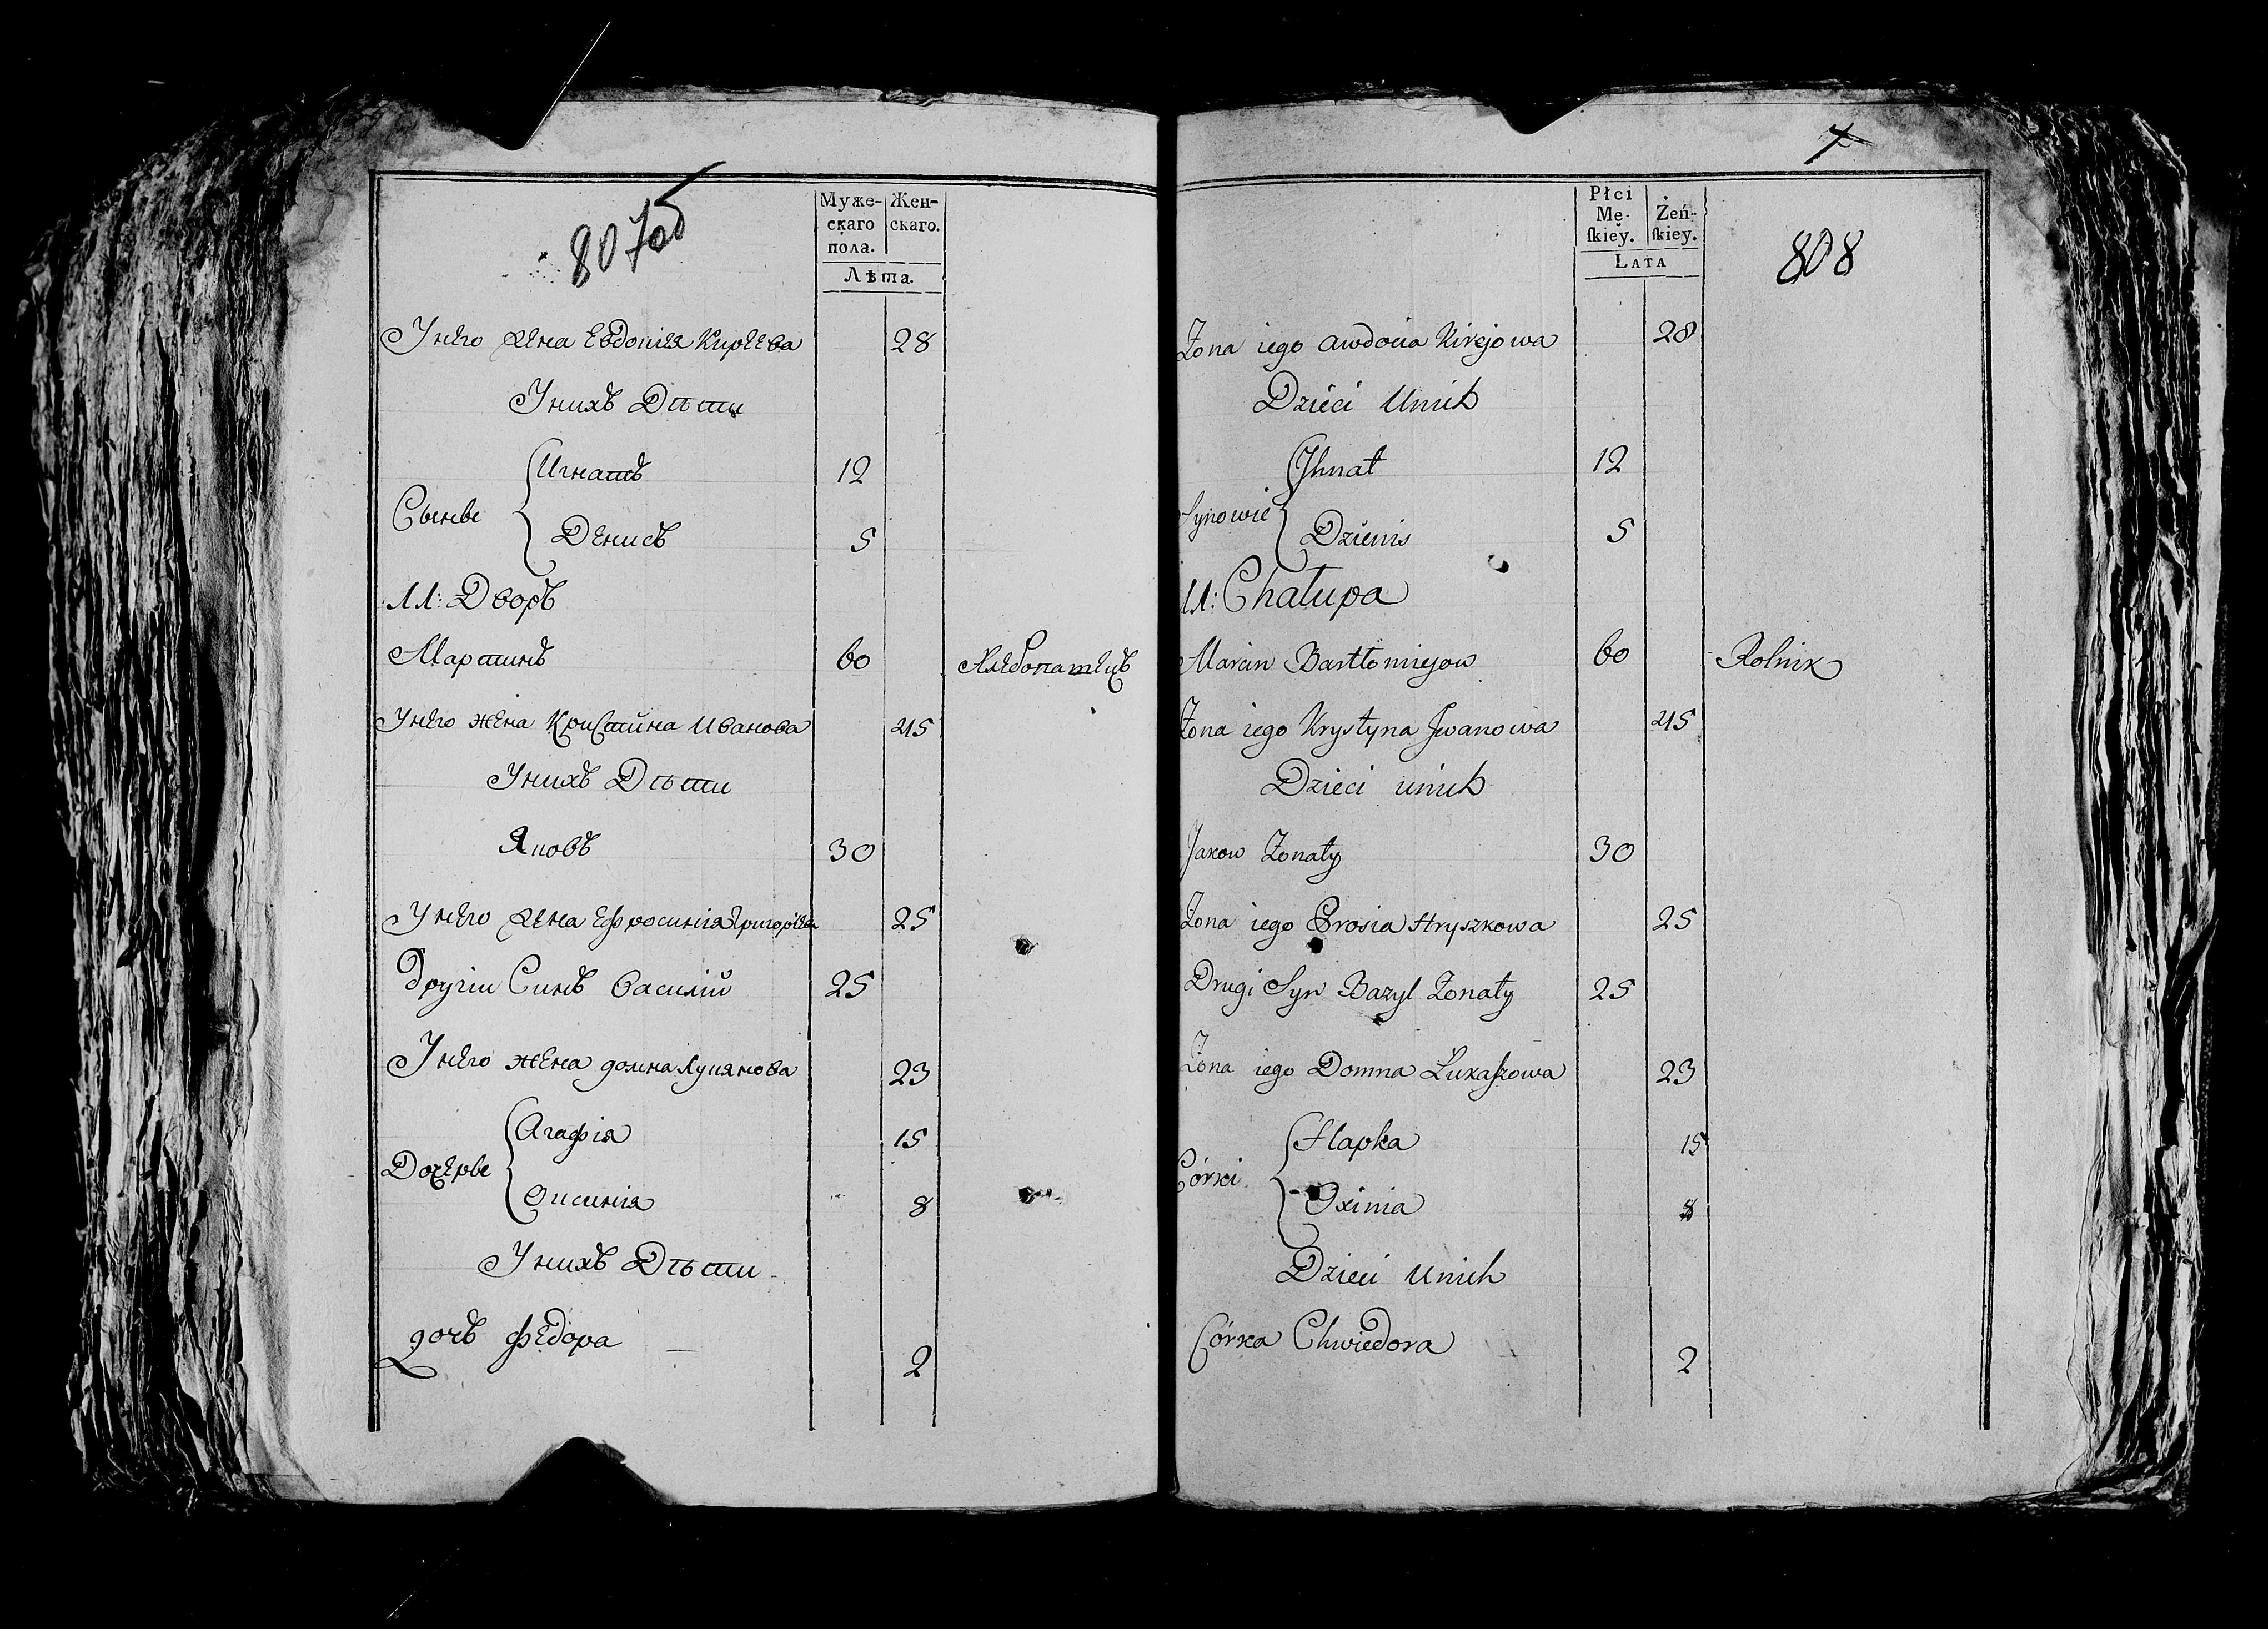 807об
Муже-
скаго
пола.
Жен-
скаго.
Лѣта.
Унего жена Евдокія Кирѣева 28
Унихъ Дѣти
Игнатъ 12
Сынве
Денисъ 5
11: Дворъ
Мартинъ 60 Хлебопатецъ
Унего жена Кристина Иванова 45
Унихъ Дѣти
Яковъ 30
Унего жена Ефросинія Григорѣва 25
другіи Синъ Василій 25
Унего жена домна Лукянова 23
Агафія 15
Дочерве
Оксинія 8
Унихъ Дѣти
дочъ Федора 2
808
Płci
Mę-
skiey.
Żeń-
skiey.
LATA
Żona iego Awdocia Kirejowa 28
Dzieci Unich
Jhnat 12
Synowie
Dzienis 5
11: Chałupa
Marcin Bartłomiejow 60 Rolnik
Żona iego Krystyna Jwanowa 45
Dzieci unich
Jakow Żonaty 30
Żona iego Prosia Hryszkowa 25
Drugi Syn Bazyl Żonaty 25
Żona iego Domna Łukaszowa 23
Hapka 15
Córki
Oxinia 8
Dzieci Unich
Córka Chwiedora 2